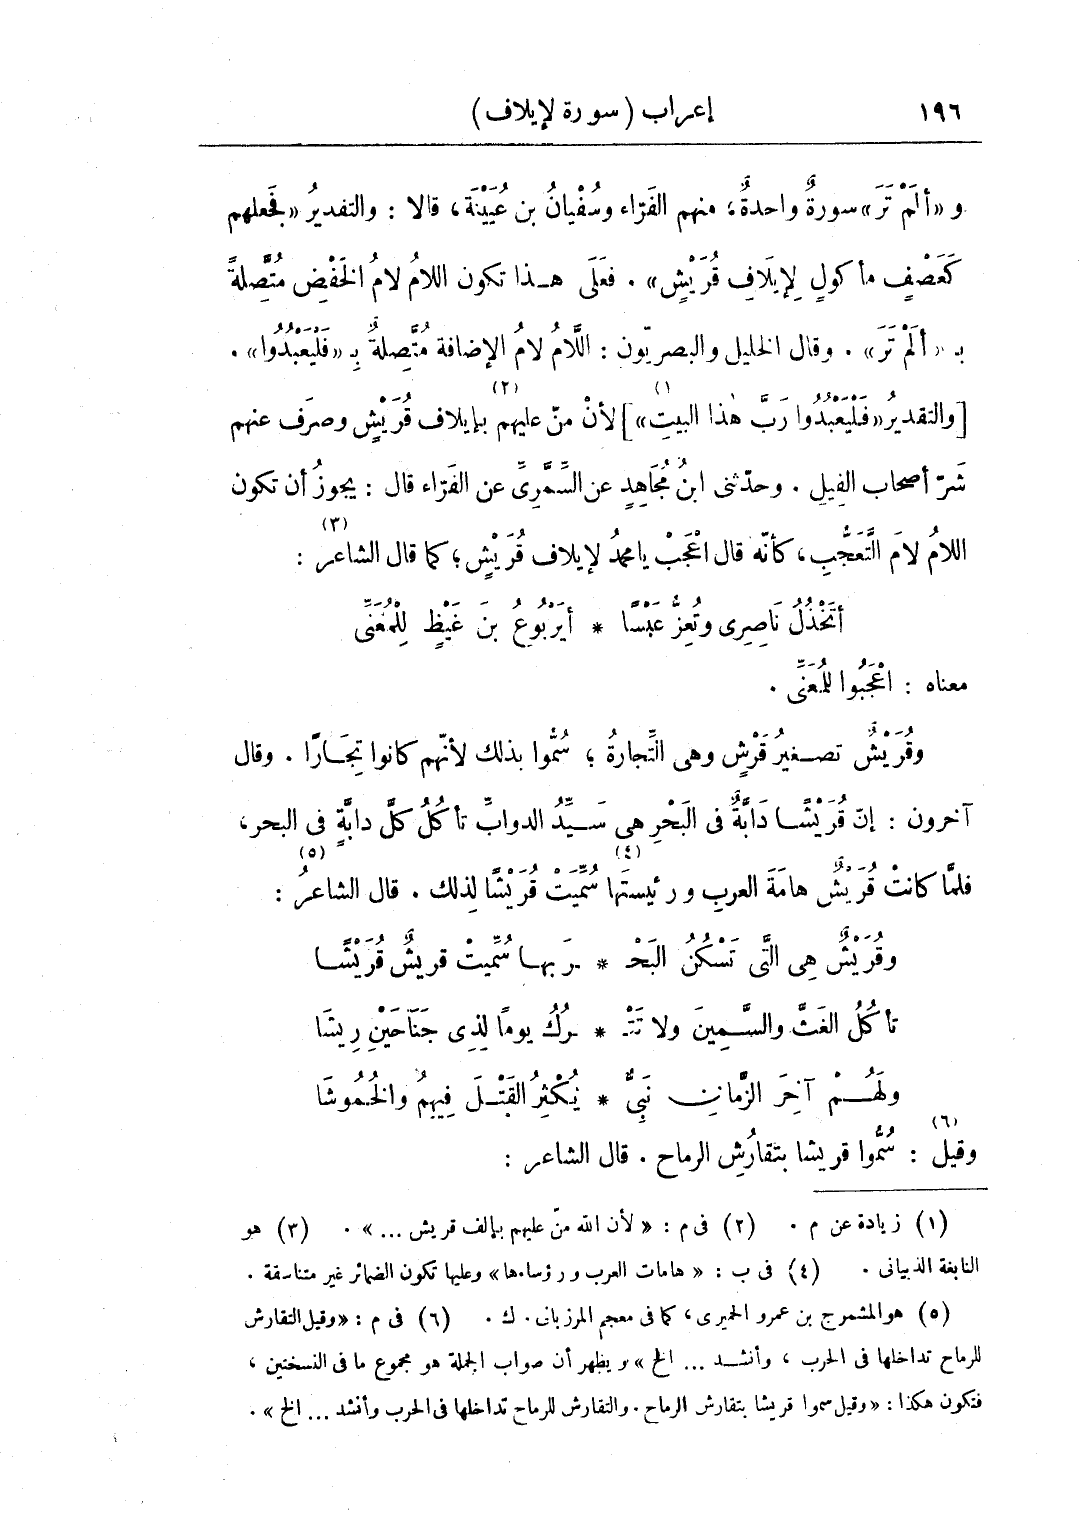 ١٩٦ إعراب (سورة لإيلاف)
و «ألَمْ تَرَ» سورةٌ واحدةٌ، منهم الفَرّاء وسُفْيانُ بن عُيَيْنَة، قالا : والتقديرُ «فجعلهم
كَعَصْفٍ مأكولٍ لِإيلَافِ قُرَيْشٍ» . فعَلَى هـذا تكون اللامُ لامُ الخَفْضِ مُتَّصِلةً
بـ «ألَمْ تَرَ» . وقال الخليل والبصريّون : اللَّامُ لامُ الإضافة مُتَّصِلةٌ بِـ «فَلْيَعْبُدُوا» .
[والتقديرُ «فَلْيَعْبُدُوا رَبَّ هٰذا البيتِ»](١) لأنْ منّ عليهم(٢) بإيلاف قُرَيْشٍ وصرَف عنهم
شَرّ أصحاب الفِيلِ . وحدّثنى ابنُ مُجَاهِدٍ عن السِّمَّرِىِّ عن الفَرّاء قال : يجوزُ أن تكون
اللامُ لامَ التَّعَجُّبِ، كأنّه قال اعْجَبْ يا محمدُ لإيلاف قُرَيْشٍ؛ كما قال الشاعر(٣) :
أتَخْذُلُ نَاصِرِى وتُعِزُّ عَبْسًا * أيَرْبُوعُ بنَ غَيْظٍ لِلْمُعَنِّى
معناه : اعْجَبُوا للمُعَنِّى .
وقُرَيْشٌ تصـغيرُ قَرْشٍ وهى التِّجارةُ ؛ سُمُّوا بذلك لأنّهم كانوا تِجَـارًا . وقال
آخرون : إنّ قُرَيْشًـا دَابَّةٌ فى البَحْرِ هى سَـيِّدُ الدوابِّ تأكُلُ كلَّ دابَّةٍ فى البحر،
فلمَّا كانتْ قُرَيْشٌ هامَةَ العربِ ورئيستَها(٤) سُمِّيَتْ قُرَيْشًا لِذلك . قال الشاعرُ(٥) :
وقُرَيْشٌ هِى الَّتِى تَسْكُنُ البَحْـ * ـرَ بهـا سُمِّيتْ قريشٌ قُرَيْشًـا
تأكُلُ الغَثَّ والسَّـمِينَ ولا تَتْـ * ـرُكُ يومًا لِذِى جَنَاحَيْنِ رِيشَا
ولَهُـمْ آخِرَ الزَّمانِ نَبِىٌّ * يُكْثِرُ القَتْـلَ فِيهِمُ والخُمُوشَا
وقيل(٦) : سُمُّوا قريشا بتقارُشِ الرماح . قال الشاعر :
(١) زيادة عن م . (٢) فى م : « لأن الله منّ عليهم بإلف قريش ... » . (٣) هو
النابغة الذبيانى . (٤) فى ب : « هامات العرب ورؤساءها » وعليها تكون الضمائر غير متناسقة .
(٥) هو المشمرج بن عمرو الحميرى، كما فى معجم المرزبانى . ك . (٦) فى م : «وقيل التقارش
للرماح تداخلها فى الحرب ، وأنشـد ... الخ » ويظهر أن صواب الجملة هو مجموع ما فى النسختين ،
فتكون هكذا : «وقيل سموا قريشا بتقارش الرماح . والتقارش للرماح تداخلها فى الحرب وأنشد ... الخ » .